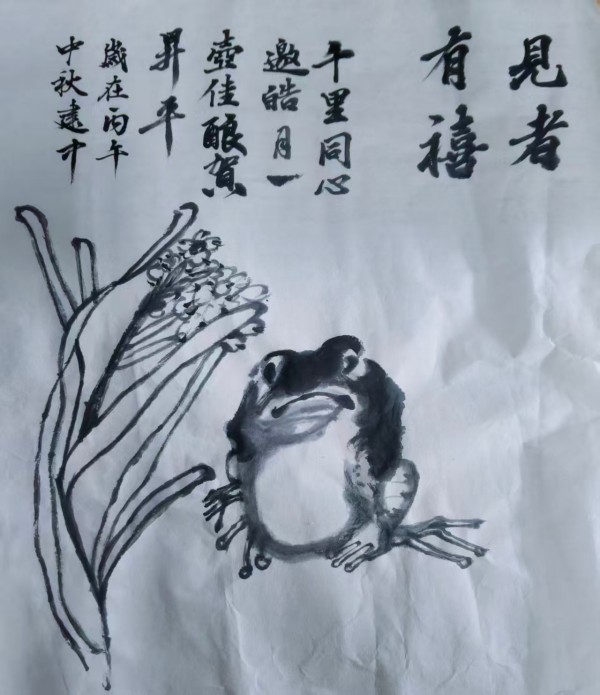 見者
有禧
千里同心
邀皓月一
壺佳釀賀
昇平
歲在丙午
中秋